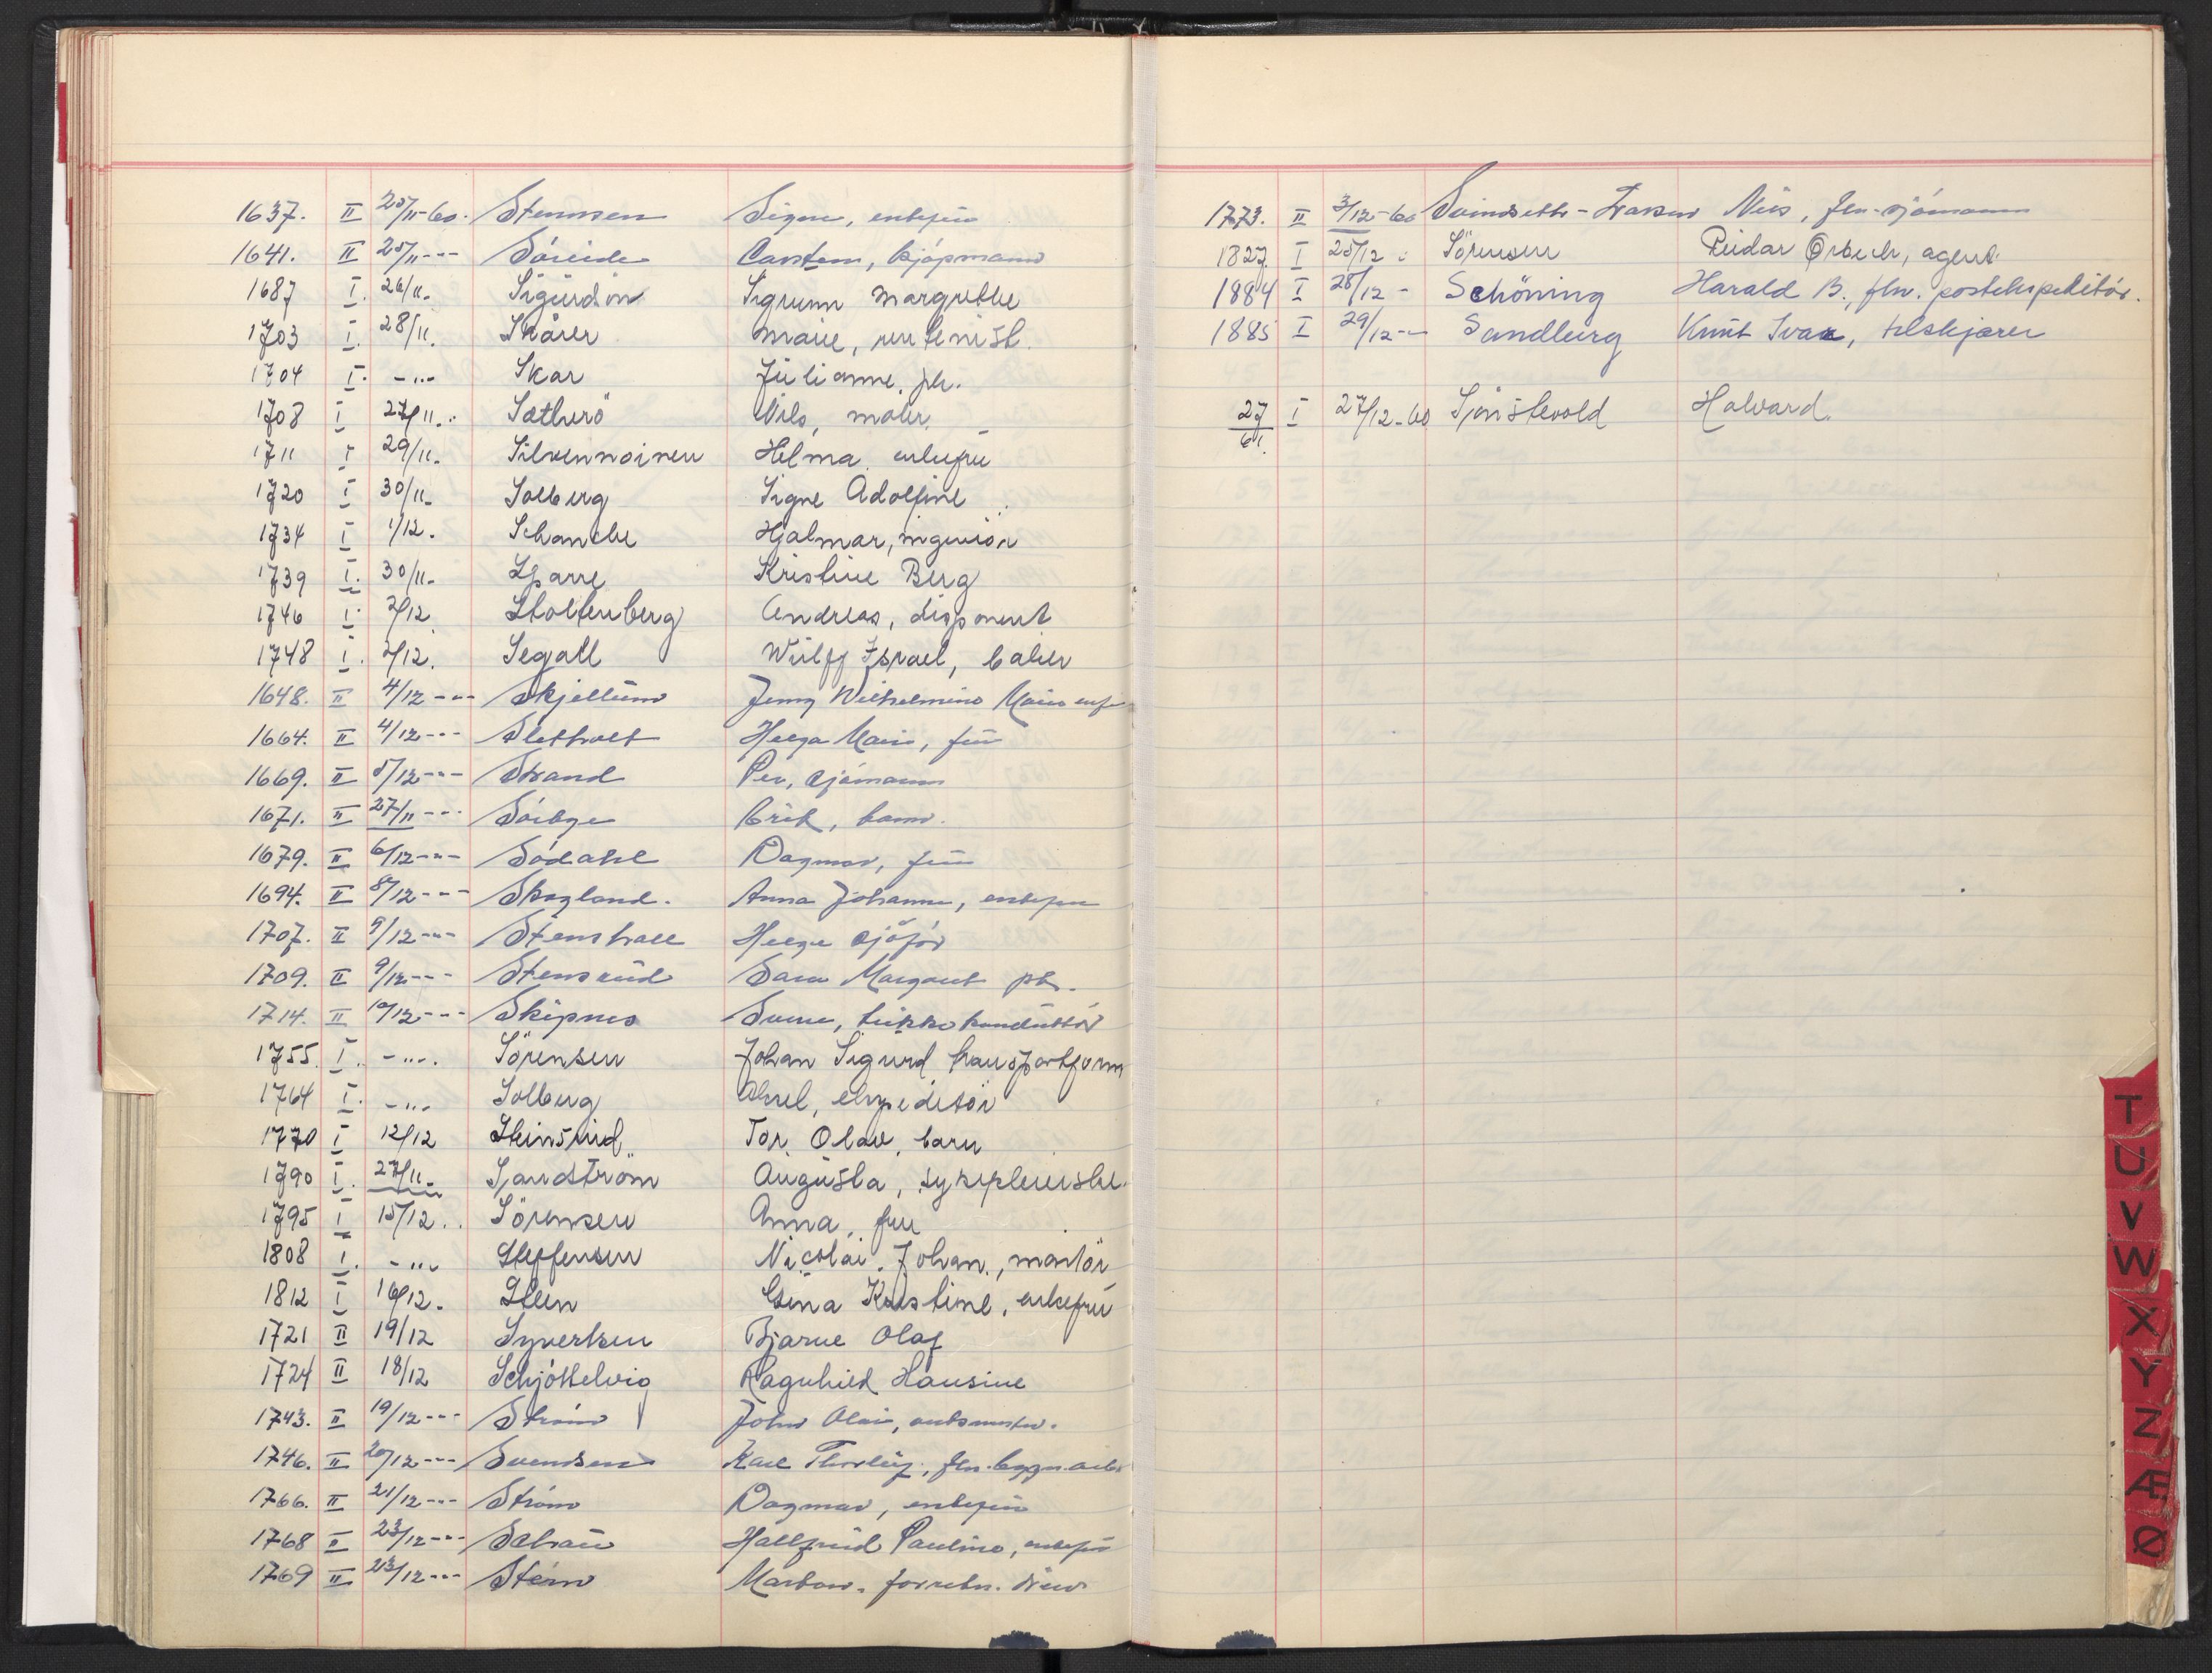 1637. II 25/11-60. Stennsen Signe, enkefrü
1641. II 25/11 --- Söreide Carsten, kjöpmann
1687 I. 26/11. Sigurdson Sigrunn Margrethe
1703 I. 28/11. Skårer Marie, rentenist.
1704 I. -"- Skar Jülianne, ph.
1708 I 27/11. Sætherö Nils, maler.
1711 I 29/11. Silvennoinen Helma enkefrü
1720 I 30/11. Solberg Signe Adolfine
1734 I 1/12. Schanche Hjalmar, ingeniör
1739 I. 30/11. Sparre Kristine Berg
1746 I. 2/12. Stoltenberg Andreas, disponent
1748 I. 2/12. Segall Wulff Israel, baker
1648. II 4/12 --- Skjellum Jenny Wilhelmine Marie
1664. II 4/12 --- Sletholt Helga Marie, frü
1669. II 5/12 --- Strand Per, sjömann
1671. II 27/11 --- Erik, barn.
1679. II 6/12 --- Södahl Dagmar, frü
1694. II 8/12 --- Skogland. Anna Johanne, enkefrü
1707. II 9/12 --- Stenshall Helge sjåför
1709. II 9/12 --- Stensrüd Sara Margaret ph.
1714. II 10/12 --- Skipnes Sverre, trikkekondüktör
1755. I. -"-. Sörensen Johan Sigurd transportform
1764 I. -"- Solberg Aksel, ekspeditör
1770 I 12/12 Steinsrud Tor Olav, barn
1790 I. 27/11. Sandström Augüsta, sykepleierske.
1795 I 15/12.. Sörensen Anna, frü
1808 I. -"- Steffensen Nicolai Johan,
1812 I 16/12. Steen Gina Kristine, enkefrü
1721 II 19/12 Syvertsen Bjarne Olaf
1724 II 18/12 Schjöttelvig Ragnhild Hansine
1743. II 19/12 --- Ström John Olai,
1746. II 20/12 --- Svendsen Karl Thorleif, fhv. bygn.arb.
1766. II 21/12 --- Ström Dagmar, enkefrü
1768 II 23/12 --- Hallfrid Pauline, enkefrü
1769 II 23/12 --- Marton. forretn.
1773. II 3/12-60 Svindseth-Larsen Nils, fhv. sjömann
1827. I 25/12 Sörensen Reidar Orbech, agent.
1884 I 28/12 - Schöning Harald B. fhv. postekspeditör.
1885 I 29/12 -- Sandberg Knut Ivar, tilskjærer
27/61. I 27/12-60 Halvard.
T
U
V
W
X
Y
Z
Æ
Ø